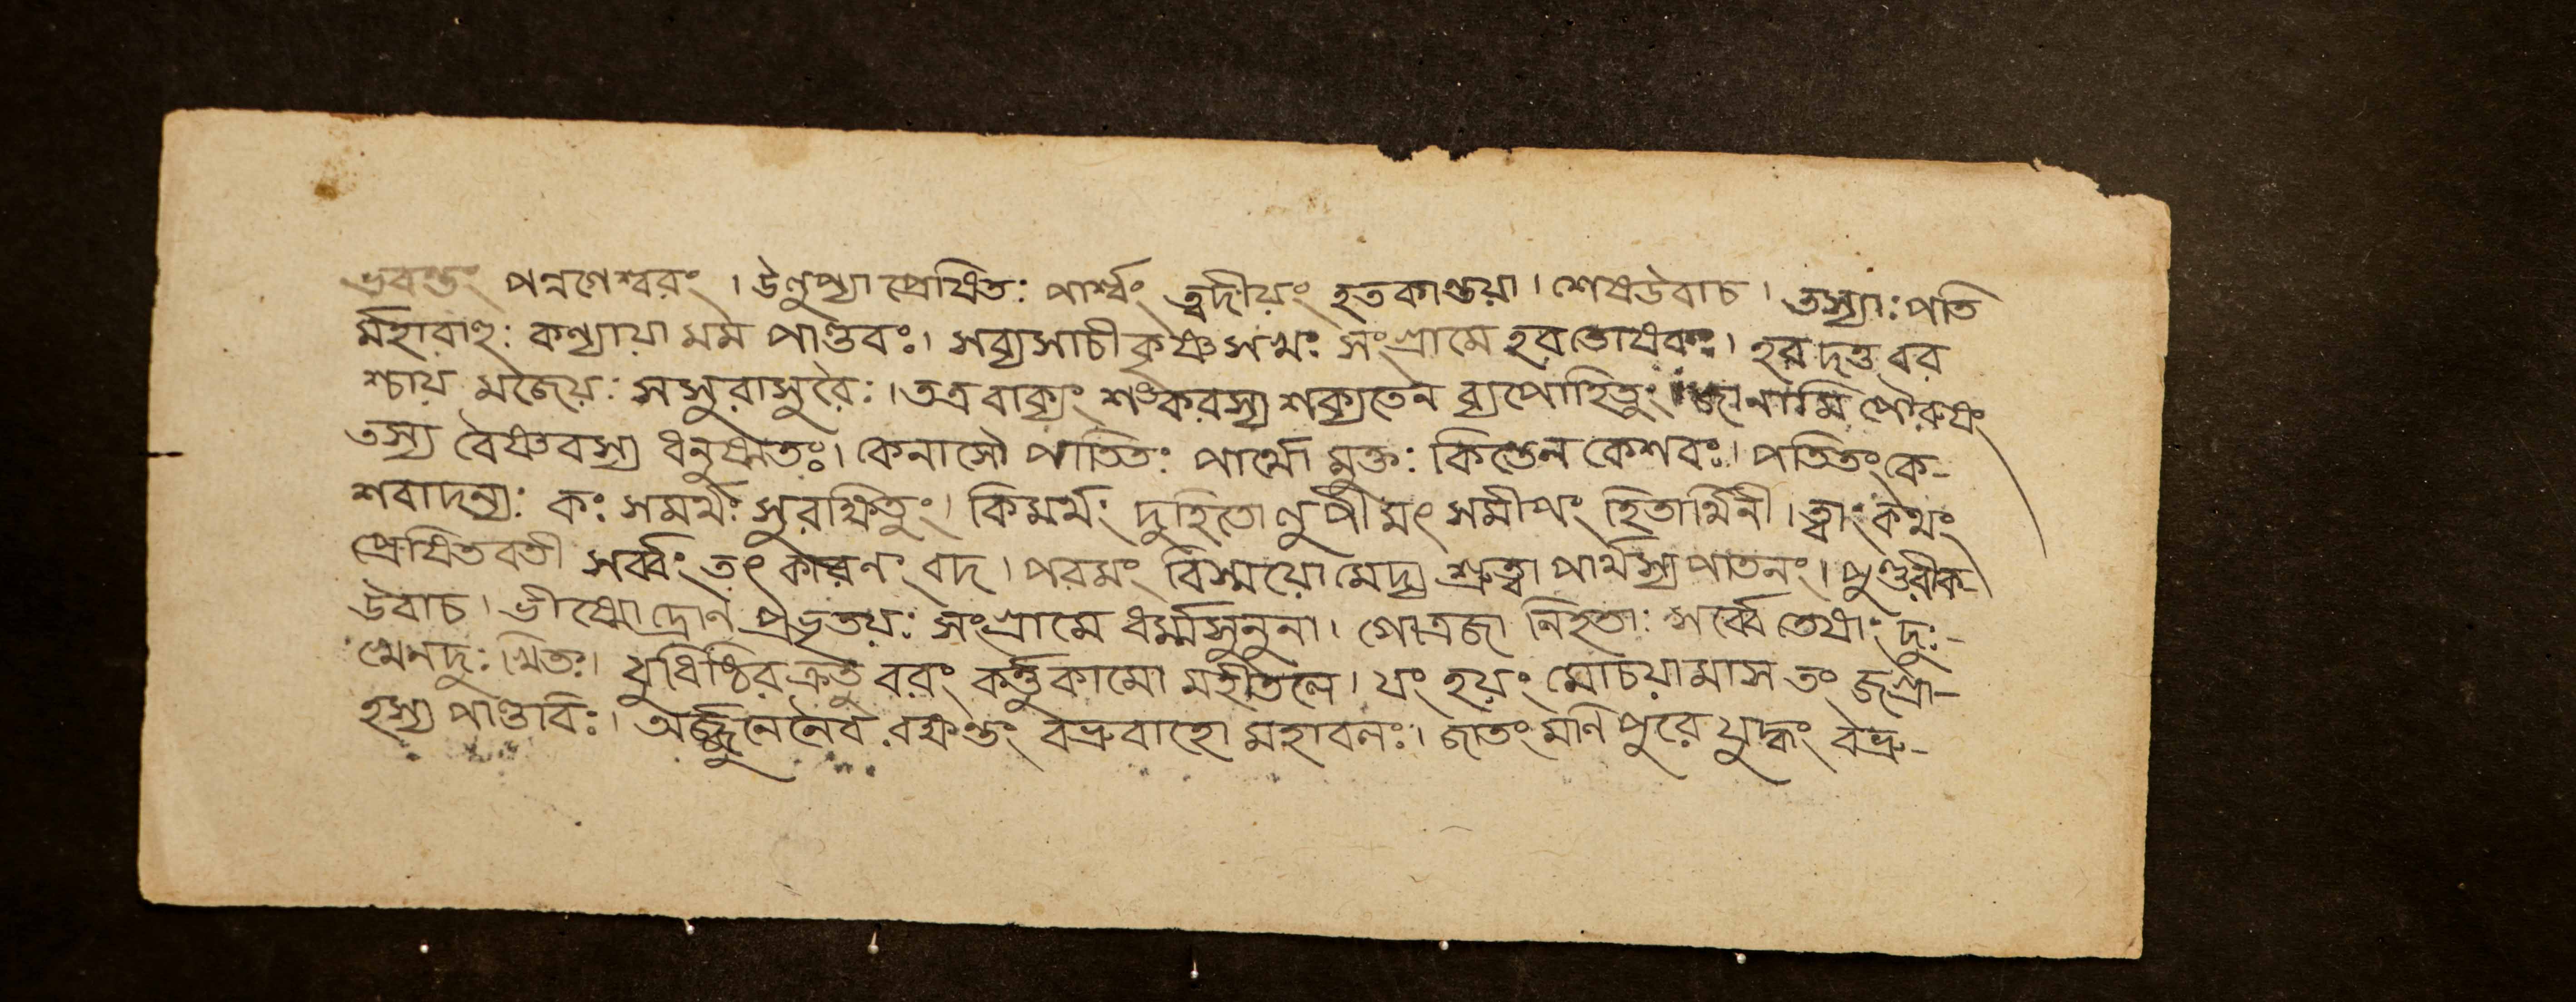 ভবন্তং পন্নগেশ্বরং । উলুপ্যা প্রেষিতঃ পার্শ্বং ত্বদীয়ং হতকান্তয়া । শেষউবাচ । তস্যাঃ পতি
র্মহাবাহুঃ কন্যায়া মম পাণ্ডবঃ । সব্যসাচী কৃষ্ণসখঃ সংগ্রামে হরতোষকঃ । হরদত্ত বর
শ্চায় মজেয়ঃ সসুরাসুরৈঃ । তত্র বাক্যং শঙ্করস্য শক্যতেন ব্যপোহিতুং । জানামি পৌরুষং
তস্য বৈষ্ণবস্য ধনুষ্মতঃ । কেনাসৌ পাতিতঃ পার্থো মুক্তঃ কিন্তেন কেশবঃ । পতিতং কে-
শবাদন্যঃ কঃ সমর্থঃ সুরক্ষিতুং । কিমর্থং দুহিতোলুপী মৎ সমীপং হিতার্থিনী । ত্বাং কথং
প্রেষিতবতী সর্ব্বং তৎ কারণং বদ । পরমং বিস্ময়োমেদ্য শ্রুত্বা পার্থস্য পাতনং । পুণ্ডরীক-
উবাচ । ভীষ্মোদ্রোণ প্রভৃতয়ঃ সংগ্রামে ধর্ম্মসুনুনা । গোত্রজা নিহতাঃ সর্ব্বে তেষাং দুঃ-
খেনদুঃখিতঃ । যুধিষ্ঠির ক্রতু বরং কর্ত্তুকামো মহীতলে । যং হয়ং মোচয়ামাস তং জগ্রা-
হস্য পাণ্ডবিঃ । অর্জ্জুনেনৈব রক্ষন্তং বভ্রুবাহো মহাবলঃ । জাতং মণিপুরে যুদ্ধং বভ্রু-